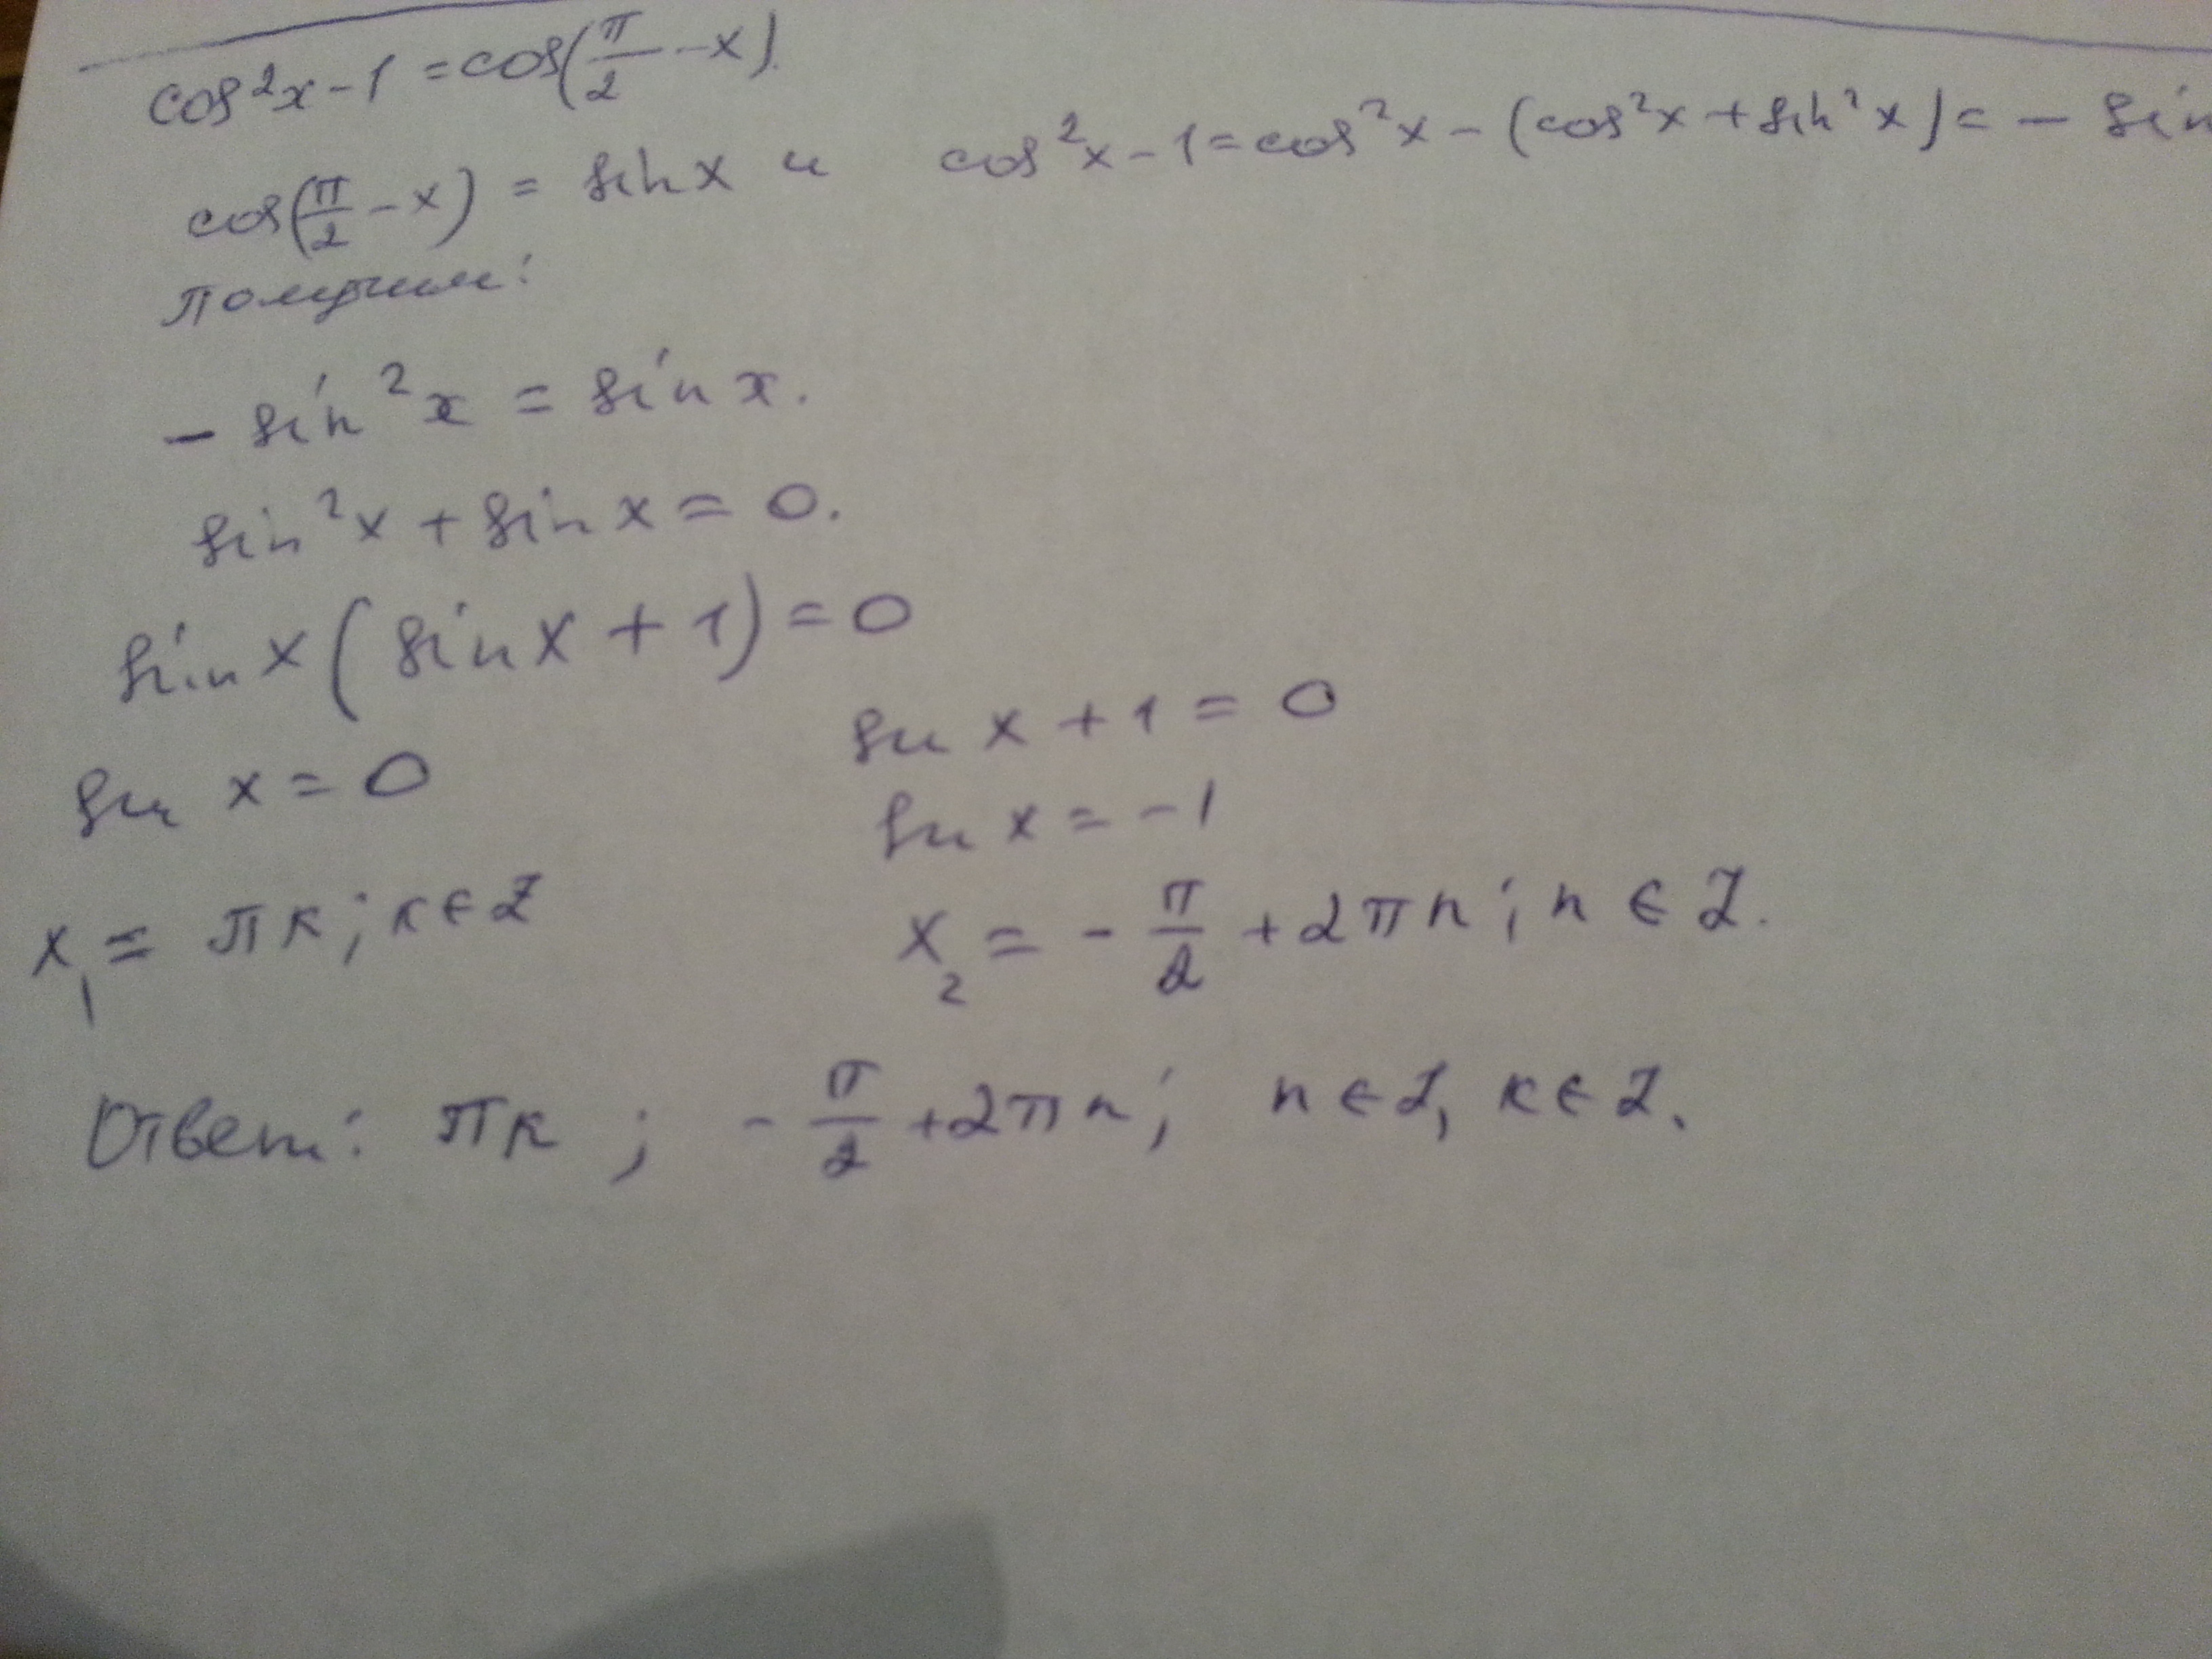 cos²x - 1 = cos(π/2 - x).
cos(π/2 - x) = sin x и cos²x - 1 = cos²x - (cos²x + sin²x) = - sin
Получим:
- sin²x = sin x.
sin²x + sin x = 0.
sin x (sin x + 1) = 0
sin x = 0 sin x + 1 = 0
sin x = -1
x₁ = πk; k ∈ Z x₂ = - π/2 + 2πn; n ∈ Z.
Ответ: πk; - π/2 + 2πn; n ∈ Z, k ∈ Z.